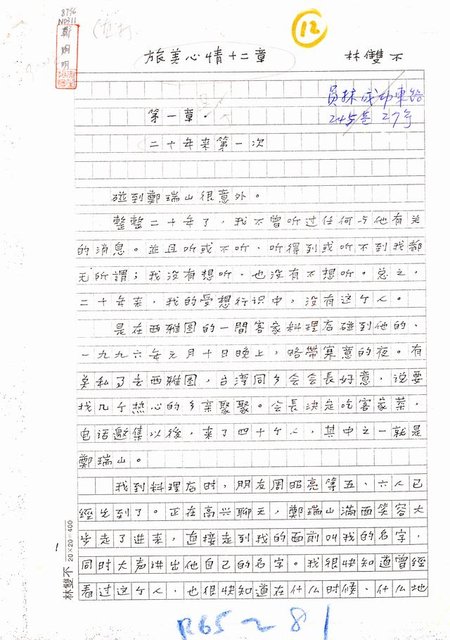 12
旅美心情十二章
林雙不
員林
245巷27号
第一章．
二十年来第一次
碰到鄭瑞山很意外。
整整二十年了，我不曾听过任何与他有关
的消息。並且听或不听、听得到或听不到我都
无所謂；我沒有想听，也沒有不想听。总之，
二十年来，我的受想行识中，沒有这个人。
是在西雅图的一間客家料理店碰到他的，
一九九六年元月十日晚上，略帶寒意的夜。有
去西雅图，台湾同乡会会長好意，说要
找几个热心的乡亲聚聚。会長決定吃客家菜，
电话邀集以後，来了四十个人，其中之一就是
鄭瑞山。
我到料理店时，朋友周昭亮等五、六人已
經先到了。正在高兴聊天，鄭瑞山滿面笑容大
步走了進来，直接走到我的面前叫我的名字，
同时大声讲出他自己的名字。我很快知道曾經
看过这个人，也很快知道在什么时候、什么地
1
林雙不 20×20=400
R65-281